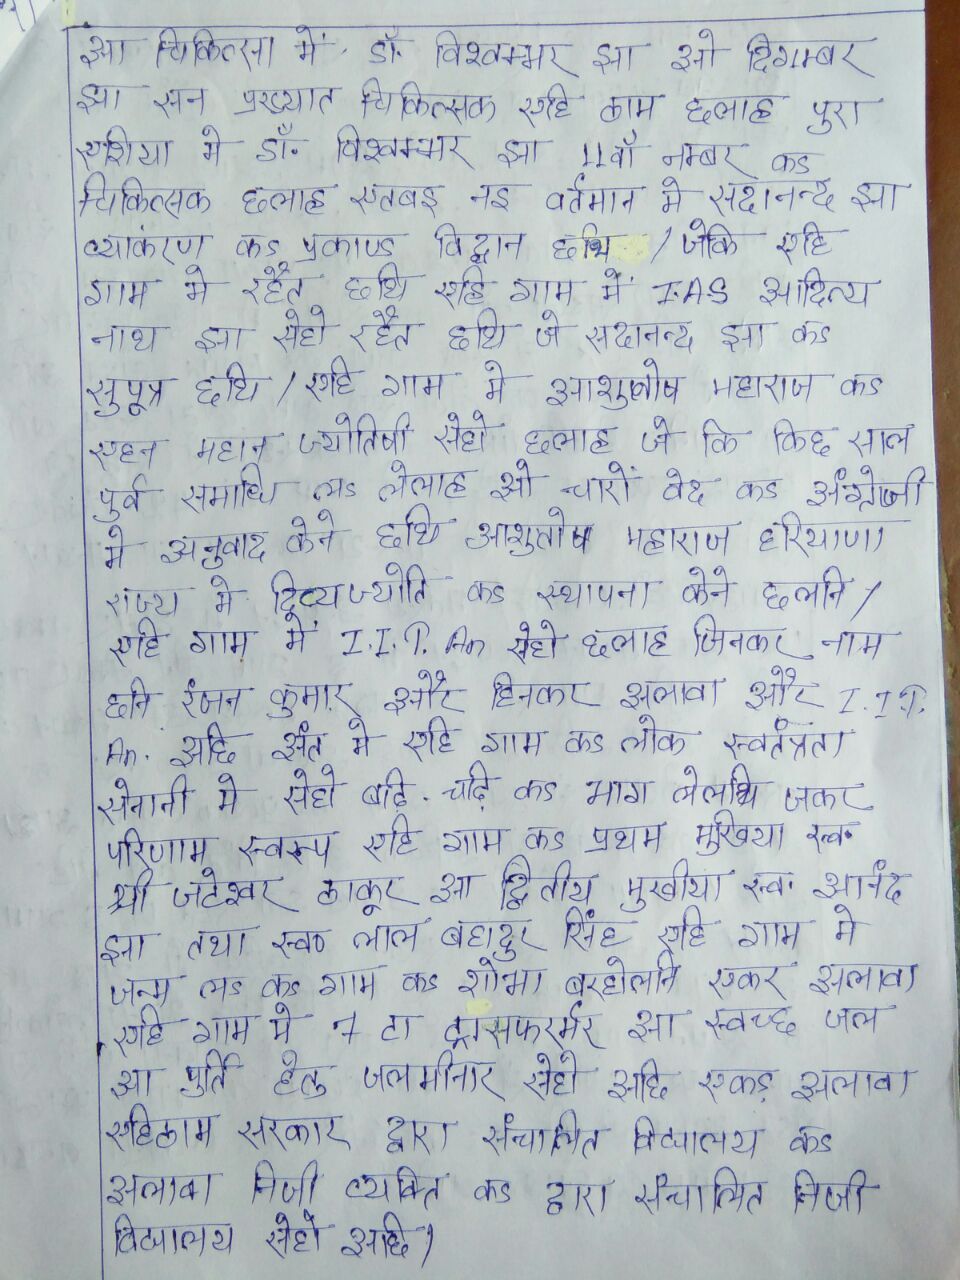 आ चिकित्सा में डॉ. विश्वम्भर झा ओ दिगम्बर
झा सन प्रख्यात चिकित्सक एहि ठाम छलाह पुरा
एशिया मे डॉ. विश्वम्भर झा 11वाँ नम्बर कऽ
चिकित्सक छलाह एतबइ नइ वर्तमान मे सदानन्द झा
व्याकंरण कऽ प्रकाण्ड विद्वान छथि / जेकि एहि
गाम मे रहैत छथि एहि गाम में I.A.S आदित्य
नाथ झा सेहो रहैत छथि जे सदानन्द झा कऽ
सुपूत्र छथि / एहि गाम मे आशुतोष महाराज कऽ
एहन महान ज्योतिषी सेहो छलाह जे कि किछ साल
पुर्व समाधि लऽ लेलाह ओ चारों वेद कऽ अंग्रेजी
मे अनुवाद केने छथि आशुतोष महाराज हरियाणा
राज्य मे दिव्यज्योति कऽ स्थापना केने छलनि /
एहि गाम में I.I.T. सेहो छलाह जिनकर नाम
छनि रंजन कुमार और हिनकर अलावा और I.I.T.
अछि अंत मे एहि गाम कऽ लोक स्वतंत्रता
सेनानी मे सेहो बढि-चढि कऽ भाग लेलथि जकर
परिणाम स्वरूप एहि गाम कऽ प्रथम मुखिया स्व.
श्री जटेश्वर ठाकूर आ द्वितीय मुखीया स्व. आनंद
झा तथा स्व० लाल बहादुर सिंह एहि गाम मे
जन्म लऽ कऽ गाम कऽ शोभा बरहोलनि एकर अलावा
एहि गाम मे 7 टा ट्रासफरर्मर आ स्वच्छ जल
आ पुर्ति हेतु जलमीनार सेहो अछि एकड़ अलावा
एहिठाम सरकार द्वारा संचालित विद्यालय कऽ
अलावा निजी व्यक्ति कऽ द्वारा संचालित निजी
विद्यालय सेहो अछि /